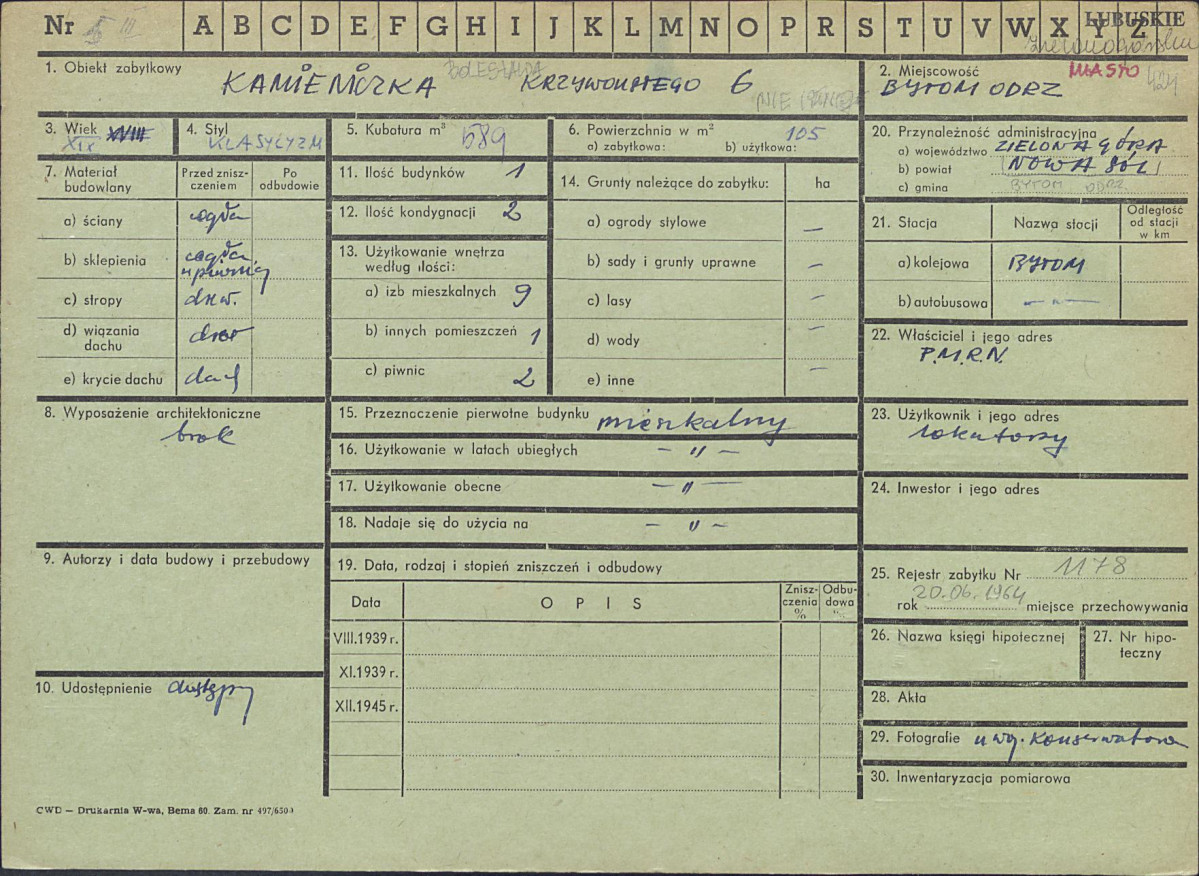 Nr 5 III A B C D E F G H I J K L M N O P R S T U V W X Y Z LUBUSKIE
zielonogórskie
1. Obiekt zabytkowy
KAMIENICZKA BOLESŁAWA KRZYWOUSTEGO 6
NIE
2. Miejscowość MIASTO 424
BYTOM ODRZ
3. Wiek XVIII
XIX
4. Styl
KLASYCYZM
5. Kubatura m³
589
6. Powierzchnia w m² 105
a) zabytkowa: b) użytkowa:
20. Przynależność administracyjna
a) województwo ZIELONA GÓRA
b) powiat NOWA SÓL
c) gmina BYTOM ODRZ.
7. Materiał budowlany
Przed znisz-
czeniem
Po
odbudowie
a) ściany cegła
b) sklepienia cegła,
w piwnicy
c) stropy drew.
d) wiązania
dachu drew
e) krycie dachu dach
11. Ilość budynków 1
12. Ilość kondygnacji 2
13. Użytkowanie wnętrza
według ilości:
a) izb mieszkalnych 9
b) innych pomieszczeń 1
c) piwnic 2
14. Grunty należące do zabytku: ha
a) ogrody stylowe —
b) sady i grunty uprawne —
c) lasy —
d) wody —
e) inne —
21. Stacja Nazwa stacji
Odległość
od stacji
w km
a) kolejowa BYTOM
b) autobusowa — " —
22. Właściciel i jego adres
P.M.R.N.
8. Wyposażenie architektoniczne
brak
15. Przeznaczenie pierwotne budynku mieszkalny
16. Użytkowanie w latach ubiegłych — " —
17. Użytkowanie obecne — " —
18. Nadaje się do użycia na — " —
23. Użytkownik i jego adres
lokatorzy
24. Inwestor i jego adres
9. Autorzy i data budowy i przebudowy
19. Data, rodzaj i stopień zniszczeń i odbudowy
Data OPIS
Znisz-
czenia
%
Odbu-
dowa
%
VIII.1939 r.
XI.1939 r.
XII.1945 r.
25. Rejestr zabytku Nr 1178
rok 20.06.1964 miejsce przechowywania
26. Nazwa księgi hipotecznej
27. Nr hipo-
teczny
10. Udostępnienie dostępny
28. Akta
29. Fotografie u woj. Konserwatora
30. Inwentaryzacja pomiarowa
CWD — Drukarnia W-wa, Bema 60. Zam. nr 497/6500